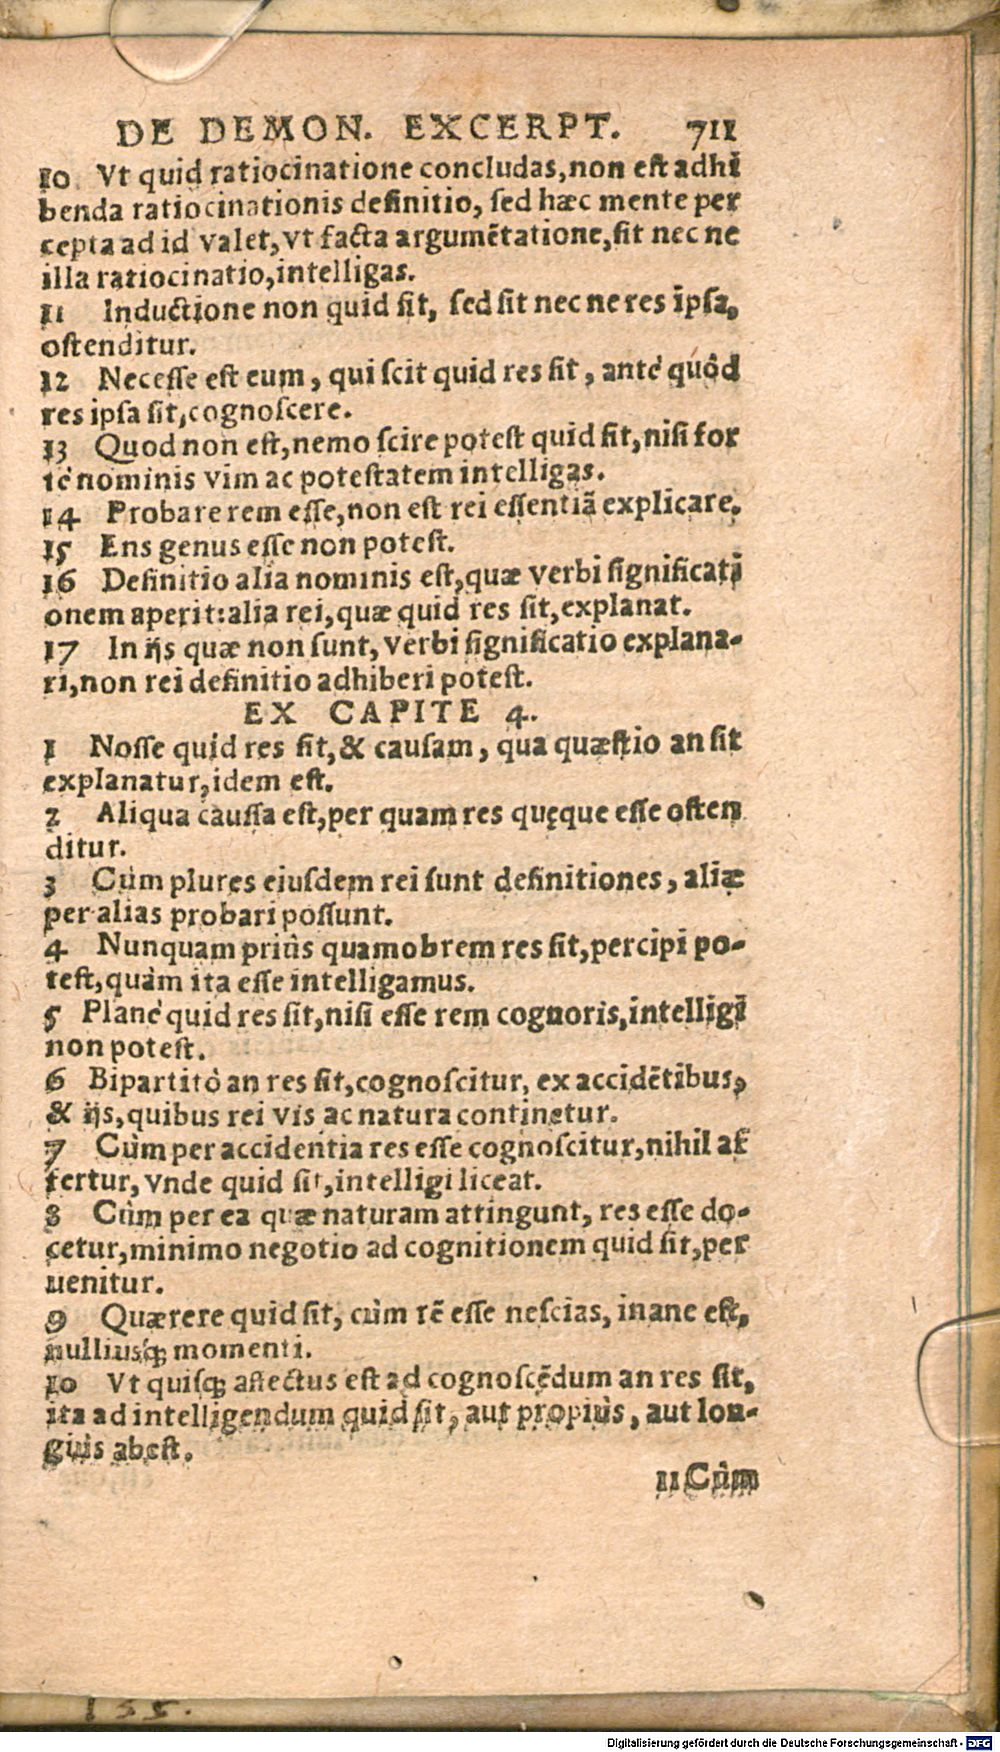 DE DEMON. EXCERPT. 711
10 Vt quid ratiocinatione concludas, non est adhi
benda ratiocinationis definitio, sed hæc mente per
cepta ad id valet, vt facta argumẽtatione, sit nec ne
illa ratiocinatio, intelligas.
11 Inductione non quid sit, sed sit nec ne res ipsa,
ostenditur.
12 Necesse est eum, qui scit quid res sit, antè quòd
res ipsa sit, cognoscere.
13 Quod non est, nemo scire potest quid sit, nisi for
tè nominis vim ac potestatem intelligas.
14 Probare rem esse, non est rei essentiã explicare.
15 Ens genus esse non potest.
16 Definitio alia nominis est, quæ verbi significati
onem aperit: alia rei, quæ quid res sit, explanat.
17 In ijs quæ non sunt, verbi significatio explana-
ri, non rei definitio adhiberi potest.
EX CAPITE 4.
1 Nosse quid res sit, & causam, qua quæstio an sit
explanatur, idem est.
2 Aliqua caussa est, per quam res quęque esse osten
ditur.
3 Cùm plures eiusdem rei sunt definitiones, aliæ
per alias probari possunt.
4 Nunquam priùs quamobrem res sit, percipi po-
test, quàm ita esse intelligamus.
5 Planè quid res sit, nisi esse rem cognoris, intelligi
non potest.
6 Bipartitò an res sit, cognoscitur, ex accidẽtibus,
& ijs, quibus rei vis ac natura continetur.
7 Cùm per accidentia res esse cognoscitur, nihil af
fertur, vnde quid sit, intelligi liceat.
8 Cùm per ea quæ naturam attingunt, res esse do-
cetur, minimo negotio ad cognitionem quid sit, per
uenitur.
9 Quærere quid sit, cùm rẽ esse nescias, inane est,
nulliusq́; momenti.
10 Vt quisq; affectus est ad cognoscẽdum an res sit,
ita ad intelligendum quid sit, aut propiùs, aut lon-
giùs abest.
11 Cùm
155.
Digitalisierung gefördert durch die Deutsche Forschungsgemeinschaft - DFG